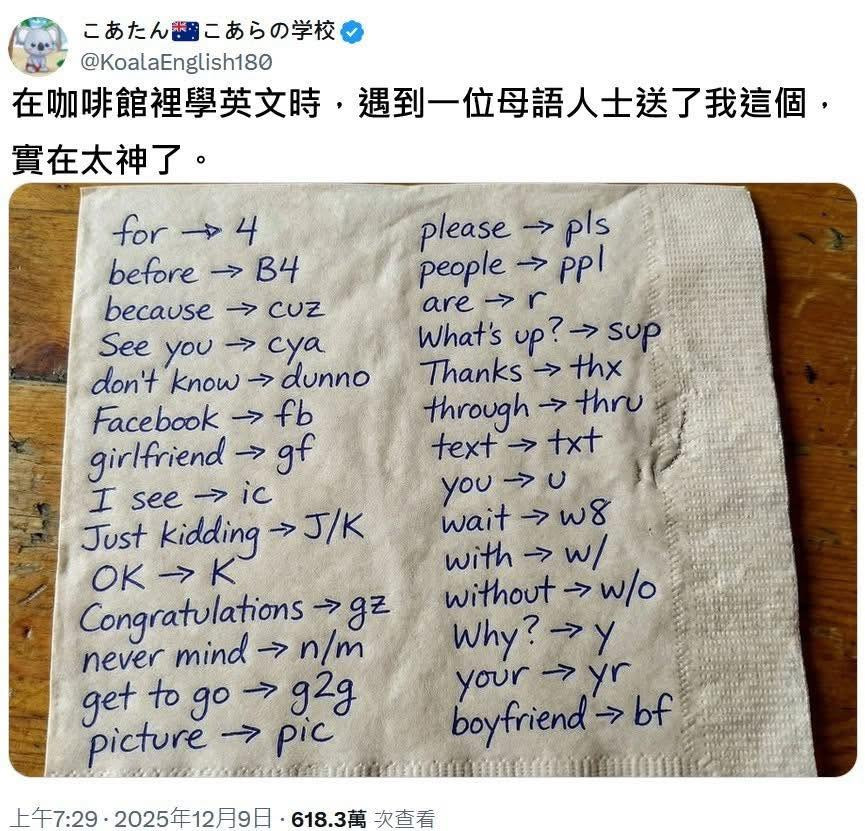 こあたん🇦🇺こあらの学校
@KoalaEnglish180
在咖啡館裡學英文時，遇到一位母語人士送了我這個，
實在太神了。
for → 4
before → B4
because → cuz
See you → cya
don't know → dunno
Facebook → fb
girlfriend → gf
I see → ic
Just kidding → J/K
OK → K
Congratulations → gz
never mind → n/m
get to go → g2g
picture → pic
please → pls
people → ppl
are → r
What's up? → sup
Thanks → thx
through → thru
text → txt
you → u
wait → w8
with → w/
without → w/o
Why? → y
your → yr
boyfriend → bf
上午7:29 · 2025年12月9日 · 618.3萬 次查看